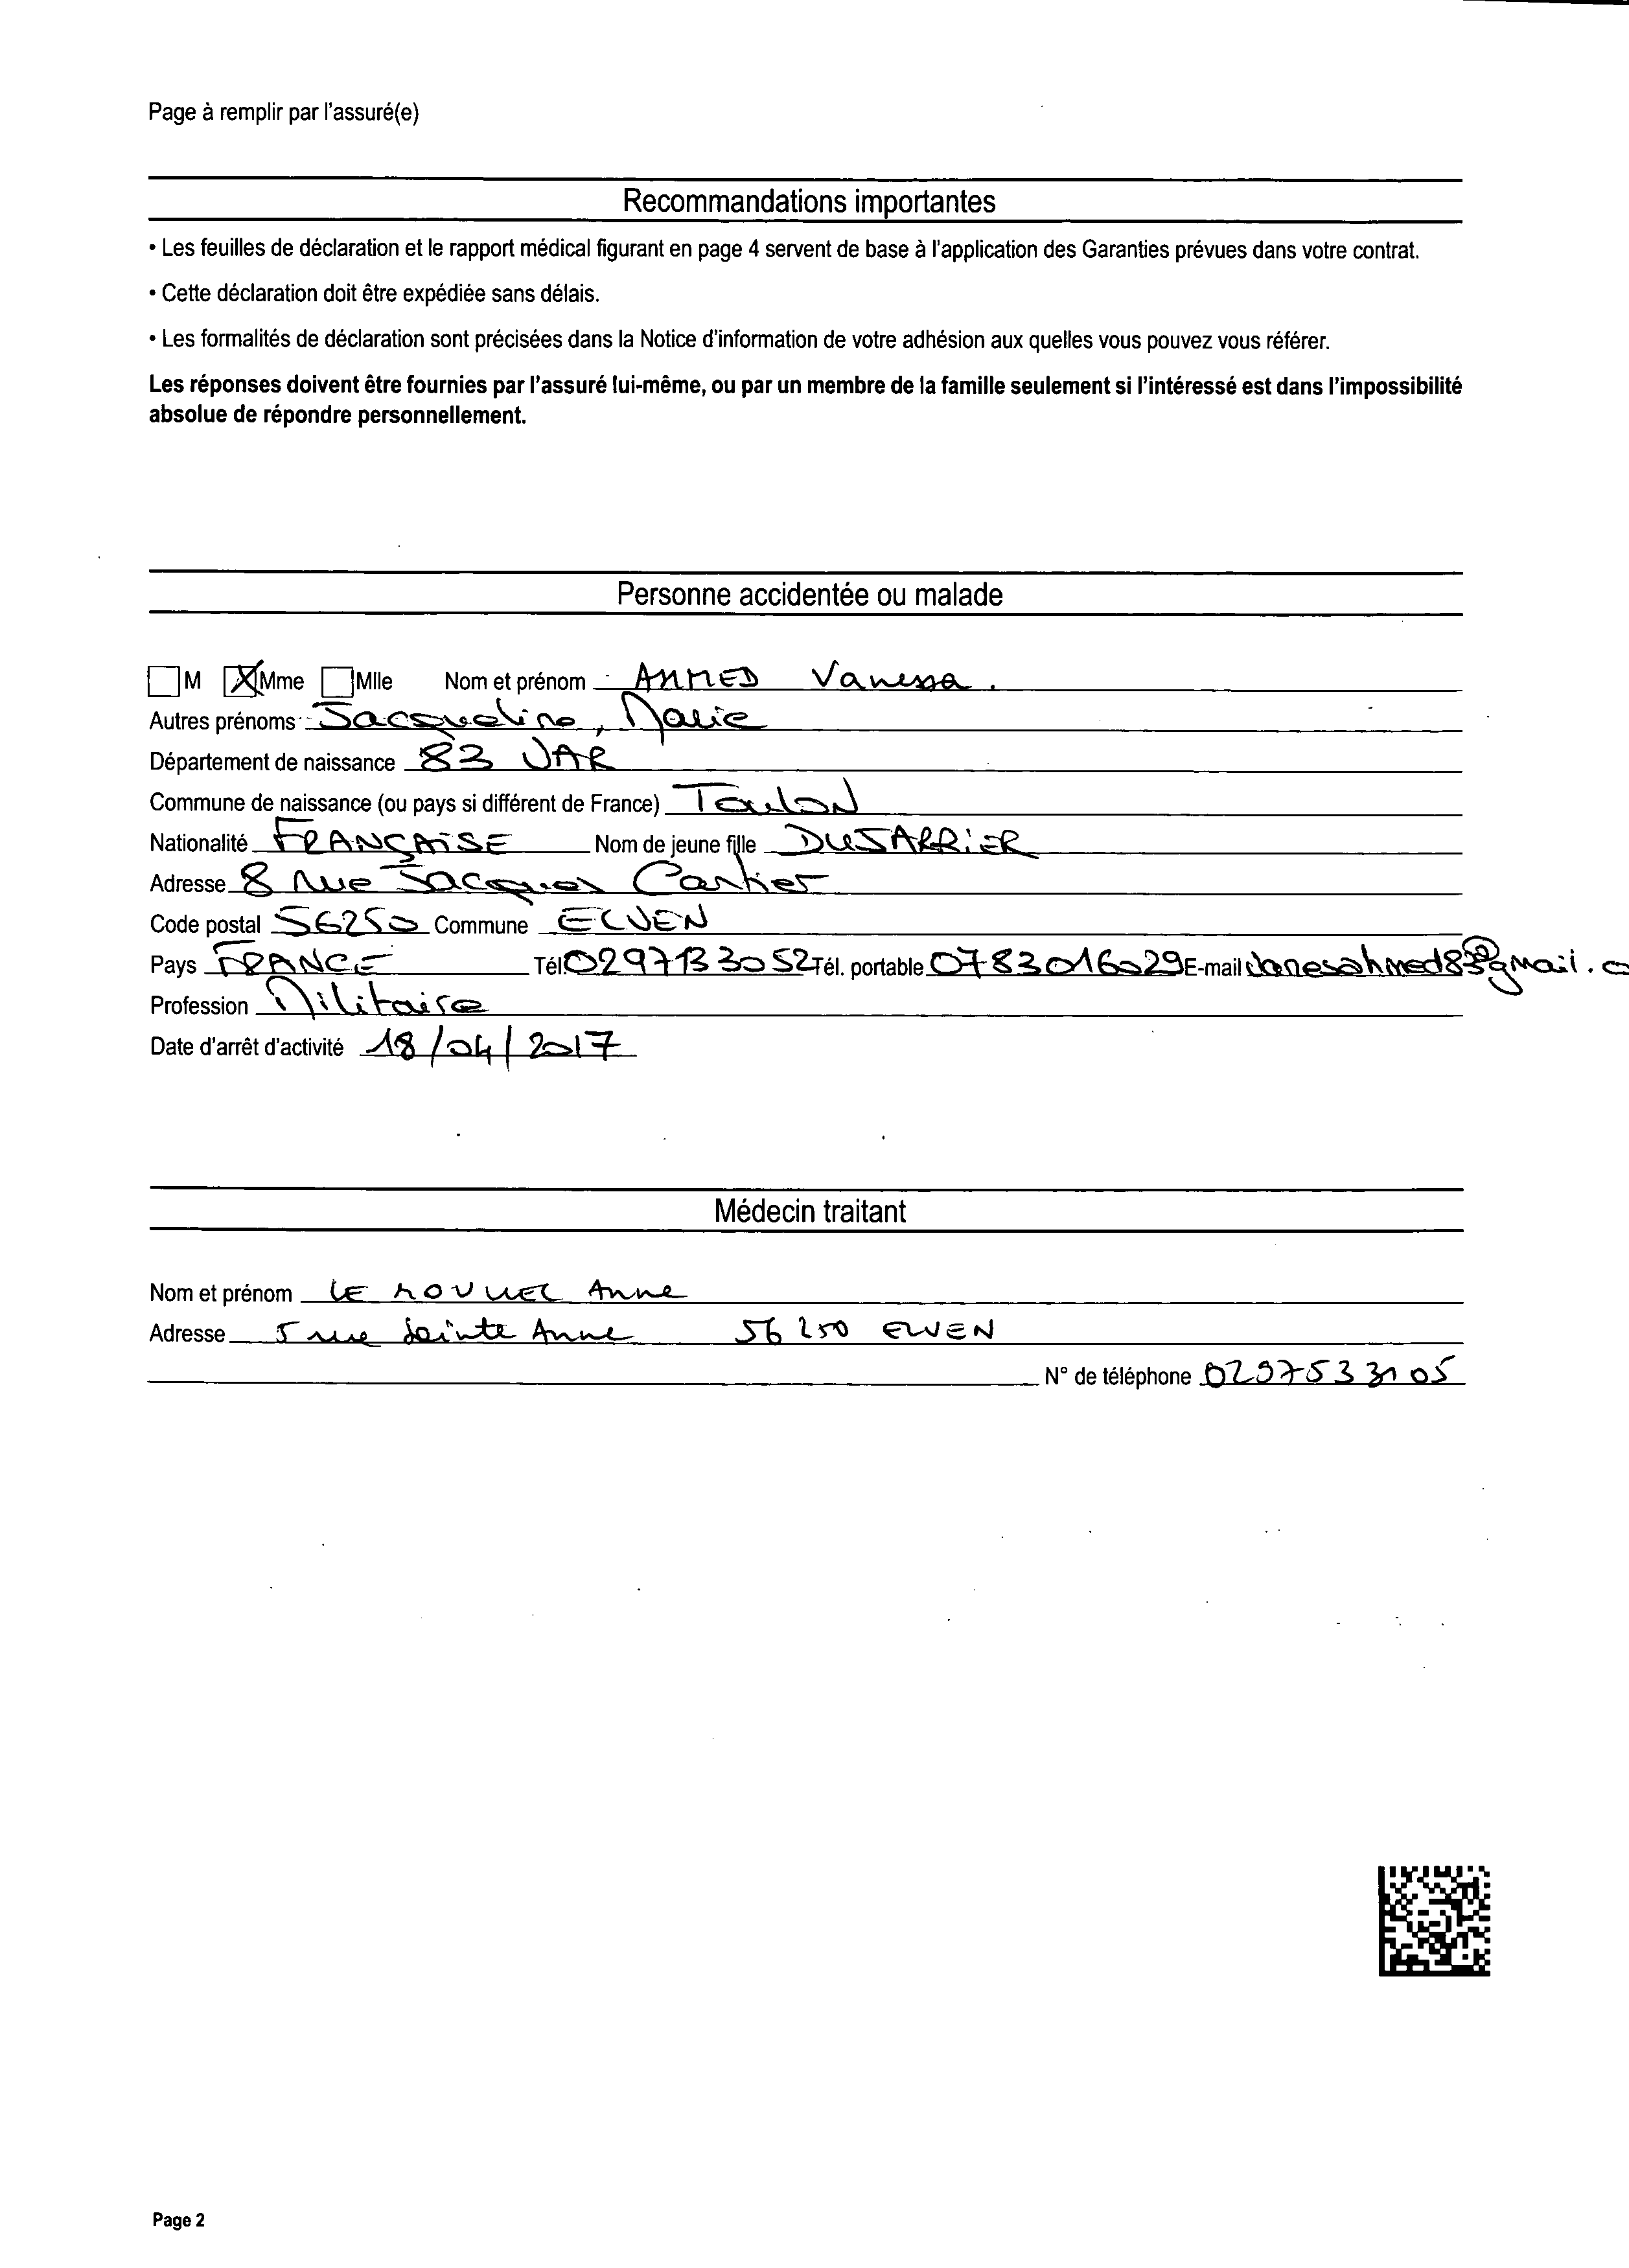 Page à remplir par l'assuré(e)
Recommandations importantes
• Les feuilles de déclaration et le rapport médical figurant en page 4 servent de base à l'application des Garanties prévues dans votre contrat.
• Cette déclaration doit être expédiée sans délais.
• Les formalités de déclaration sont précisées dans la Notice d'information de votre adhésion aux quelles vous pouvez vous référer.
Les réponses doivent être fournies par l'assuré lui-même, ou par un membre de la famille seulement si l'intéressé est dans l'impossibilité
absolue de répondre personnellement.
Personne accidentée ou malade
M Mme Mlle Nom et prénom AHMED Vanessa.
Autres prénoms Jacqueline, Marie
Département de naissance 83 VAR
Commune de naissance (ou pays si différent de France) Toulon
Nationalité FRANÇAISE Nom de jeune fille DUJARRIER
Adresse 8 rue Jacques Cartier
Code postal 56250 Commune ELVEN
Pays FRANCE Tél 0297133052 Tél. portable 0783016029 E-mail vanesahmed83@gmail.co
Profession Militaire
Date d'arrêt d'activité 18/04/2017
Médecin traitant
Nom et prénom LE Anne
Adresse 5 rue Sainte Anne 56250 ELVEN
N° de téléphone 0297533105
Page 2